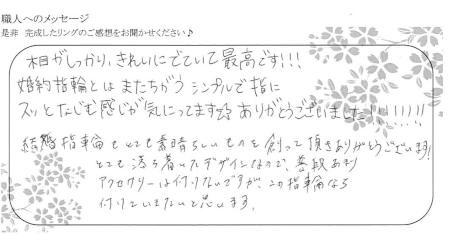 職人へのメッセージ
是非 完成したリングのご感想をお聞かせください♪
木目がしっかり、きれいにでていて最高です!!!
婚約指輪とはまたちがうシンプルで指に
スッとなじむ感じが気にってます☆ ありがとうございました!!!!!!!
結婚指輪もとても素晴らしいものを創って頂きありがとうございます!
とても落ち着いたデザインなので、普段あまり
アクセサリーは付けないですが、この指輪なら
付けていきたいと思います。